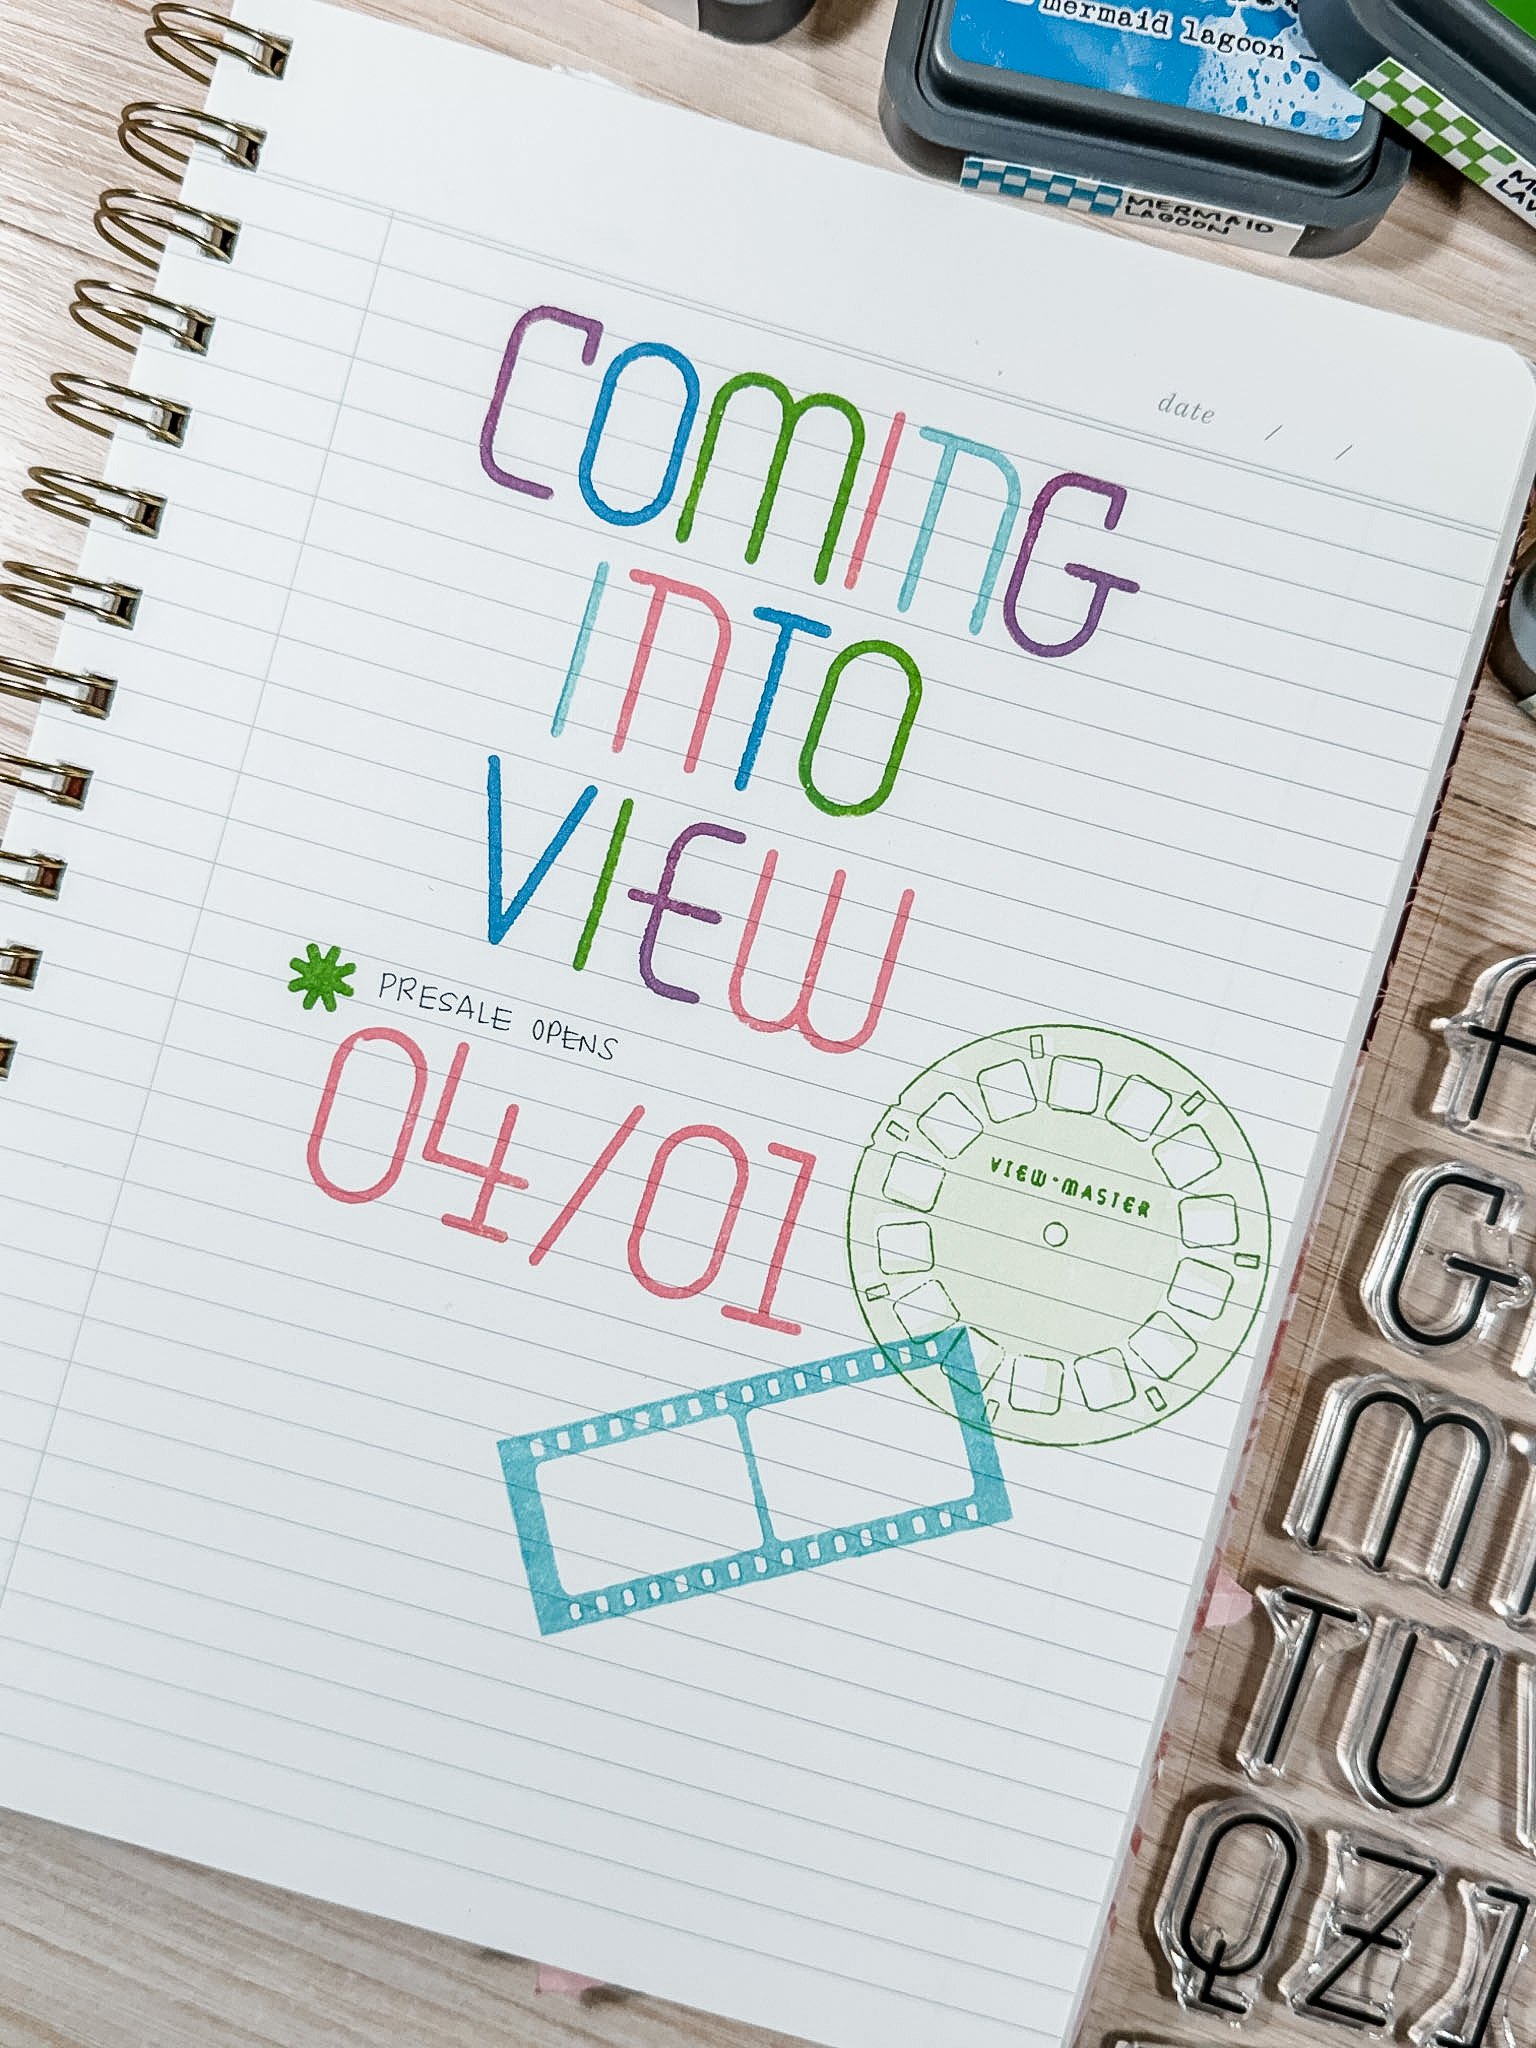 mermaid lagoon
MERMAID
LAGOON
date / /
COMING
INTO
VIEW
PRESALE OPENS
04/01
VIEW·MASTER
G
M
T U
Q Z 1